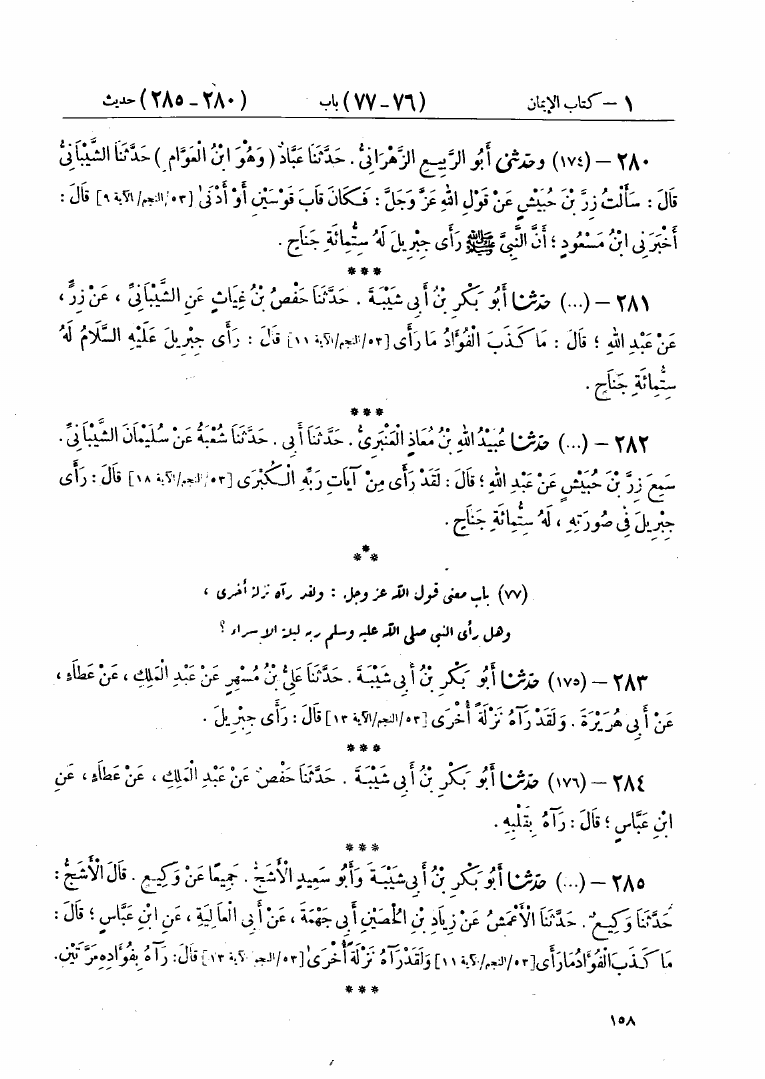 ١ - كتاب الإيمان (٧٦-٧٧) باب (٢٨٠-٢٨٥) حديث
٢٨٠ - (١٧٤) وحدثني أَبُو الرَّبِيعِ الزَّهْرَانِيُّ . حَدَّثَنَا عَبَّادٌ ( وَهُوَ ابْنُ الْعَوَّامِ ) حَدَّثَنَا الشَّيْبَانِيُّ
قَالَ : سَأَلْتُ زِرَّ بْنَ حُبَيْشٍ عَنْ قَوْلِ اللهِ عَزَّ وَجَلَّ : فَكَانَ قَابَ قَوْسَيْنِ أَوْ أَدْنَىٰ [٥٣/النجم/الآية ٩] قَالَ :
أَخْبَرَنِي ابْنُ مَسْعُودٍ ؛ أَنَّ النَّبِيَّ ﷺ رَأَى جِبْرِيلَ لَهُ سِتُّمِائَةِ جَنَاحٍ .
***
٢٨١ - (...) حَدَّثَنَا أَبُو بَكْرِ بْنُ أَبِي شَيْبَةَ . حَدَّثَنَا حَفْصُ بْنُ غِيَاثٍ عَنِ الشَّيْبَانِيِّ ، عَنْ زِرٍّ ،
عَنْ عَبْدِ اللهِ ؛ قَالَ : مَا كَذَبَ الْفُؤَادُ مَا رَأَى [٥٣/النجم/الآية ١١] قَالَ : رَأَى جِبْرِيلَ عَلَيْهِ السَّلَامُ لَهُ
سِتُّمِائَةِ جَنَاحٍ .
***
٢٨٢ - (...) حَدَّثَنَا عُبَيْدُ اللهِ بْنُ مُعَاذٍ الْعَنْبَرِيُّ . حَدَّثَنَا أَبِي . حَدَّثَنَا شُعْبَةُ عَنْ سُلَيْمَانَ الشَّيْبَانِيِّ .
سَمِعَ زِرَّ بْنَ حُبَيْشٍ عَنْ عَبْدِ اللهِ ؛ قَالَ : لَقَدْ رَأَى مِنْ آيَاتِ رَبِّهِ الْكُبْرَى [٥٣/النجم/الآية ١٨] قَالَ : رَأَى
جِبْرِيلَ فِي صُورَتِهِ ، لَهُ سِتُّمِائَةِ جَنَاحٍ .
***
(٧٧) باب معنى قول الله عز وجل : ولقد رآه نزلة أخرى ،
وهل رأى النبي صلى الله عليه وسلم ربه ليلة الإسراء ؟
٢٨٣ - (١٧٥) حَدَّثَنَا أَبُو بَكْرِ بْنُ أَبِي شَيْبَةَ . حَدَّثَنَا عَلِيُّ بْنُ مُسْهِرٍ عَنْ عَبْدِ الْمَلِكِ ، عَنْ عَطَاءٍ ،
عَنْ أَبِي هُرَيْرَةَ . وَلَقَدْ رَآهُ نَزْلَةً أُخْرَى [٥٣/النجم/الآية ١٣] قَالَ : رَأَى جِبْرِيلَ .
***
٢٨٤ - (١٧٦) حَدَّثَنَا أَبُو بَكْرِ بْنُ أَبِي شَيْبَةَ . حَدَّثَنَا حَفْصٌ عَنْ عَبْدِ الْمَلِكِ ، عَنْ عَطَاءٍ ، عَنِ
ابْنِ عَبَّاسٍ ؛ قَالَ : رَآهُ بِقَلْبِهِ .
***
٢٨٥ - (...) حَدَّثَنَا أَبُو بَكْرِ بْنُ أَبِي شَيْبَةَ وَأَبُو سَعِيدٍ الْأَشَجُّ . جَمِيعًا عَنْ وَكِيعٍ . قَالَ الْأَشَجُّ :
حَدَّثَنَا وَكِيعٌ . حَدَّثَنَا الْأَعْمَشُ عَنْ زِيَادِ بْنِ الْحُصَيْنِ أَبِي جَهْمَةَ ، عَنْ أَبِي الْعَالِيَةِ ، عَنِ ابْنِ عَبَّاسٍ ؛ قَالَ :
مَا كَذَبَ الْفُؤَادُ مَا رَأَى [٥٣/النجم/الآية ١١] وَلَقَدْ رَآهُ نَزْلَةً أُخْرَىٰ [٥٣/النجم/الآية ١٣] قَالَ : رَآهُ بِفُؤَادِهِ مَرَّتَيْنِ .
***
١٥٨